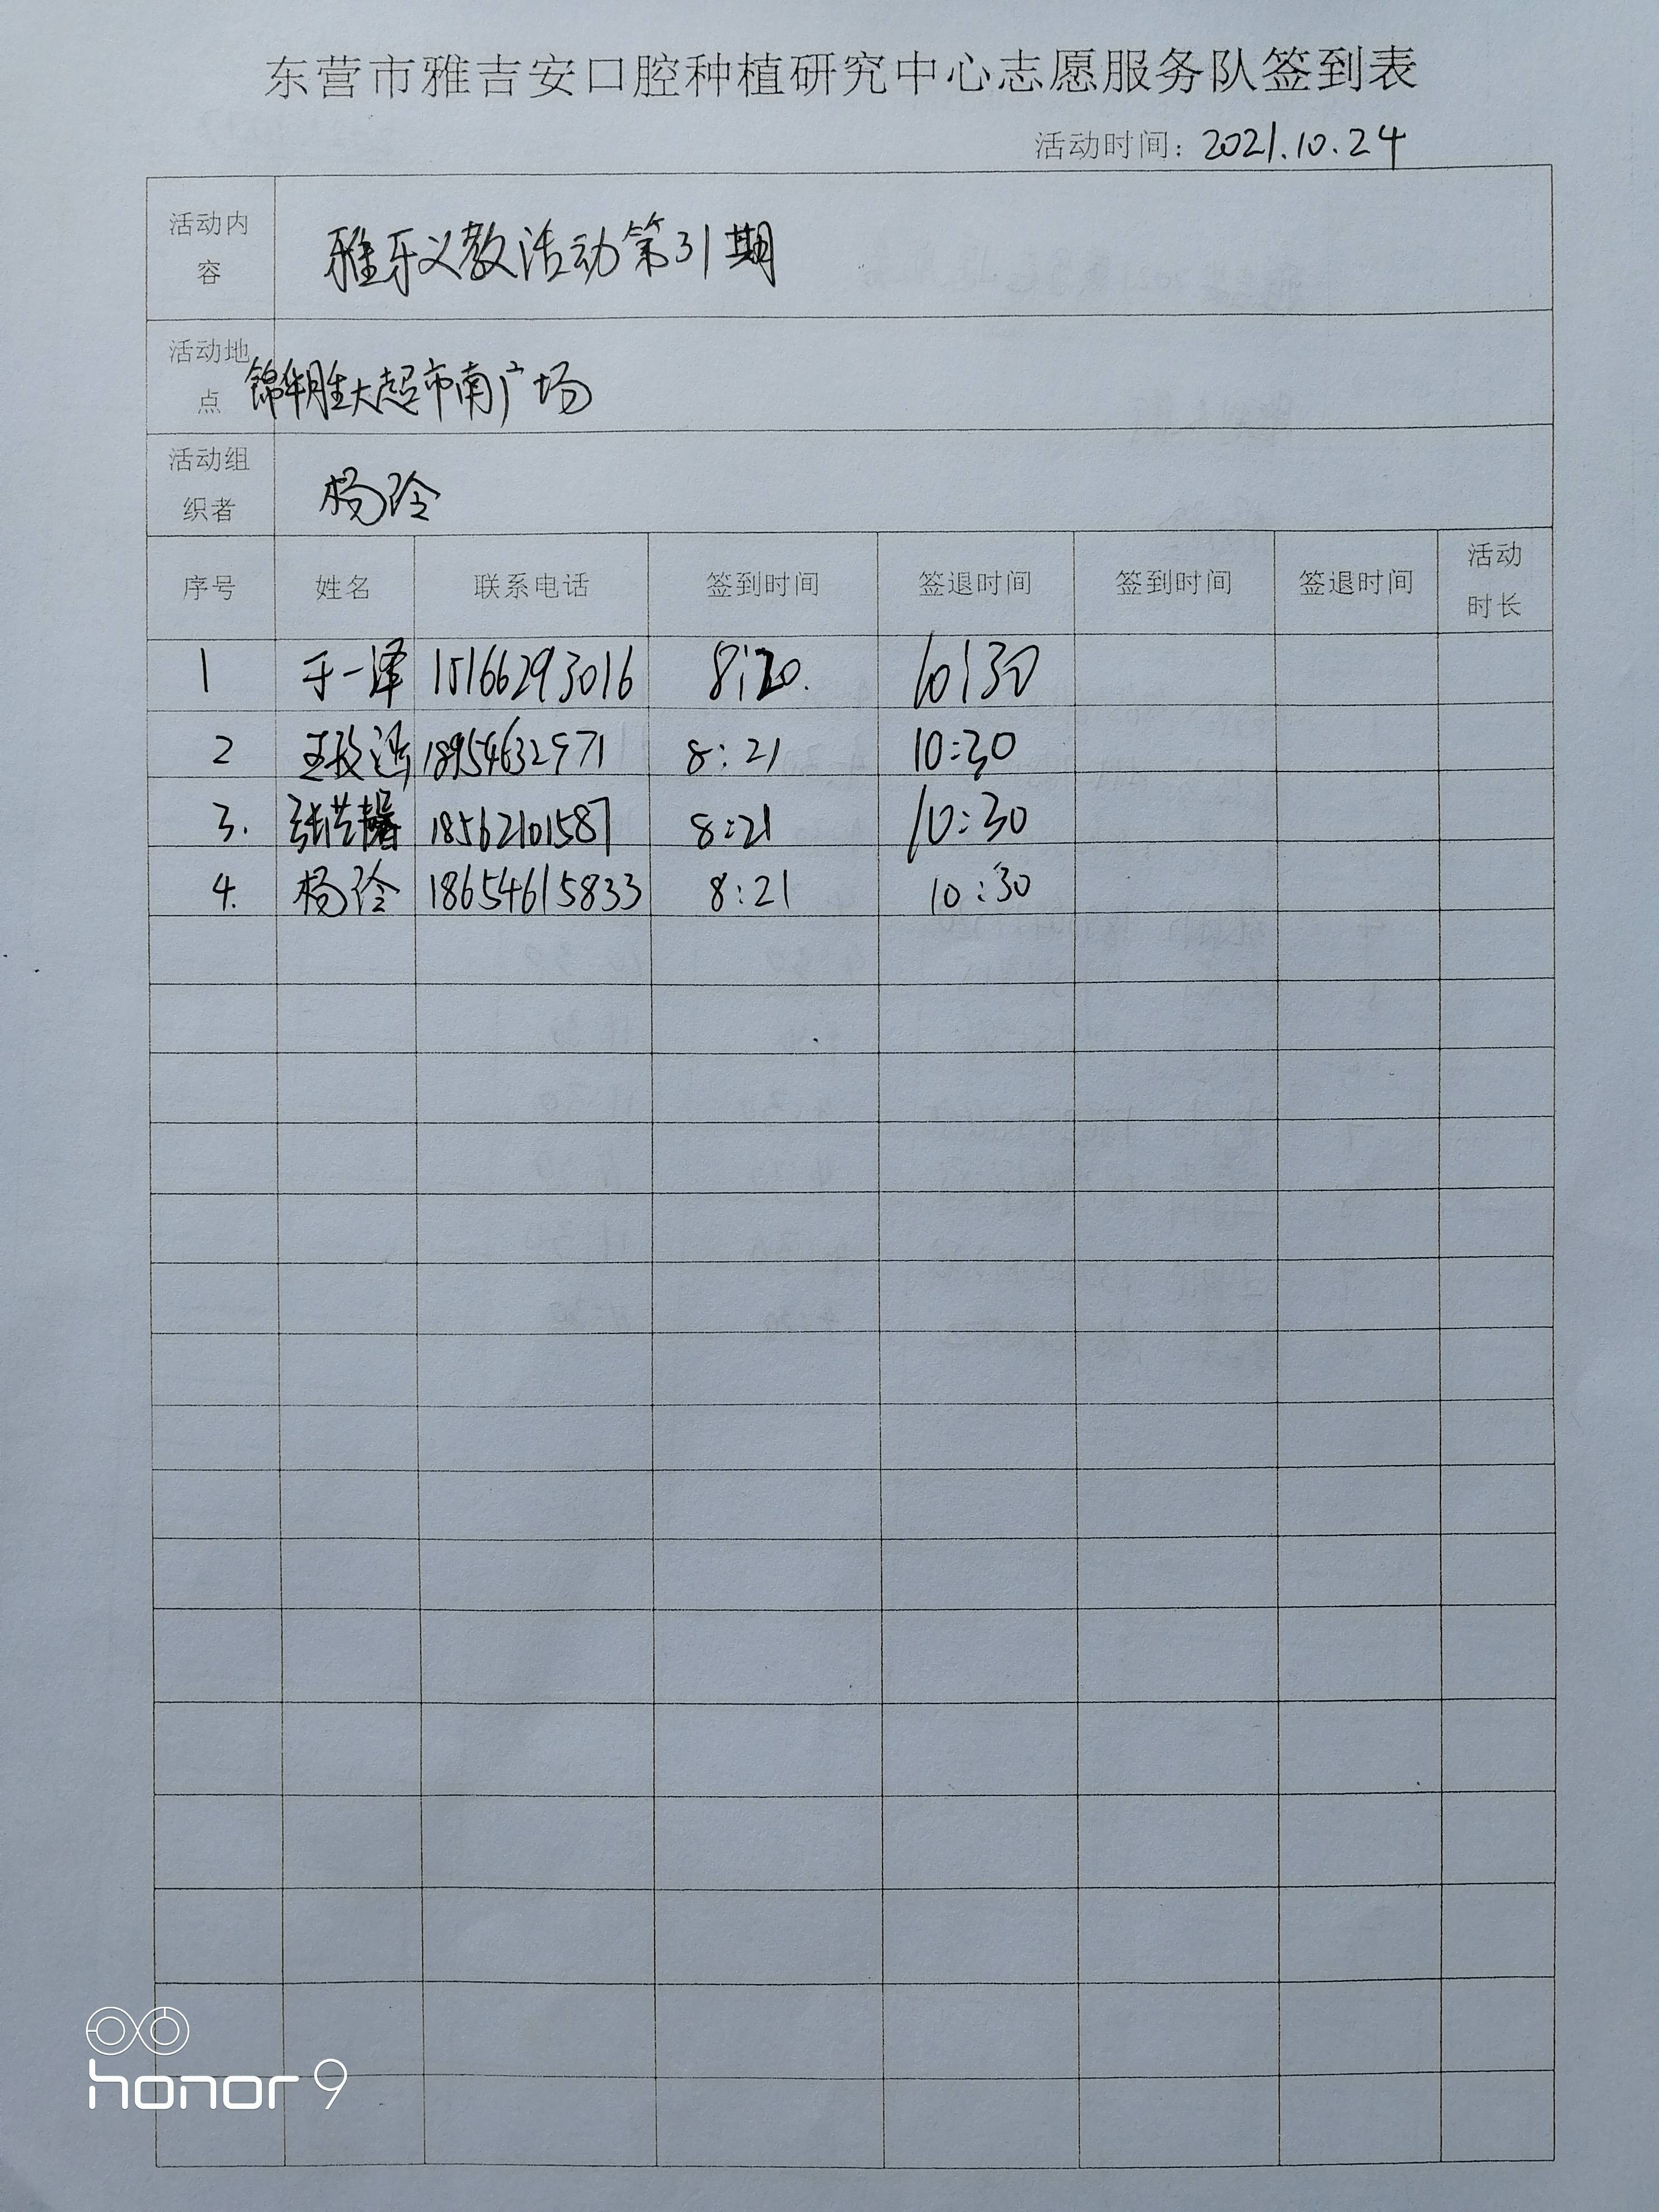 东营市雅吉安口腔种植研究中心志愿服务队签到表
活动时间: 2021.10.24
活动内容 雅乐义教活动第31期
活动地点 锦华胜大超市南广场
活动组织者 杨玲
序号 姓名 联系电话 签到时间 签退时间 签到时间 签退时间 活动时长
1 于一泽 15166293016 8:20. 10:30
2 18954632971 8:21 10:30
3. 张芸馨 18562101587 8:21 10:30
4. 杨玲 18654615833 8:21 10:30
honor 9